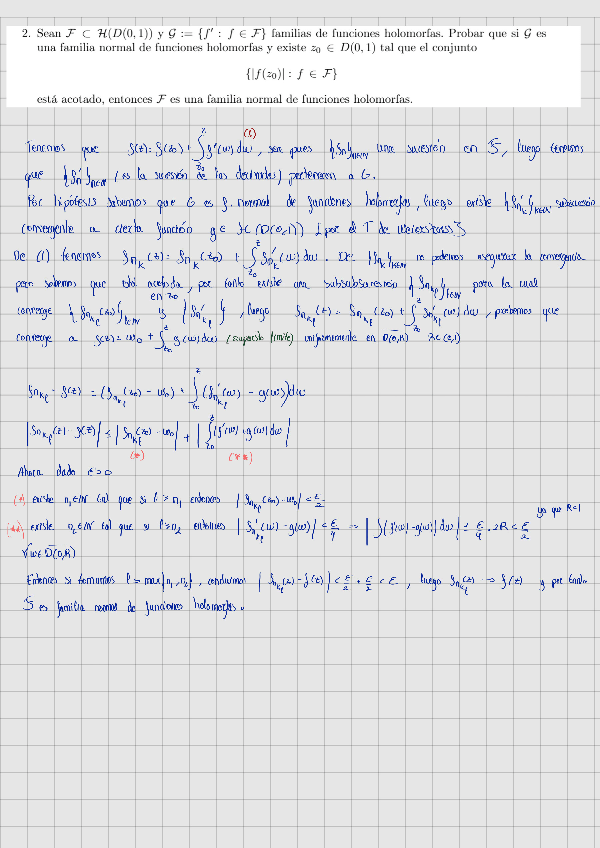 2. Sean F ⊂ H(D(0,1)) y G := {f′ : f ∈ F} familias de funciones holomorfas. Probar que si G es
una familia normal de funciones holomorfas y existe z₀ ∈ D(0,1) tal que el conjunto
{|f(z₀)| : f ∈ F}
está acotado, entonces F es una familia normal de funciones holomorfas.
(1)
Tenemos que f(z) = f(z₀) + ∫_{z₀}^{z} f'(w) dw, sea pues {fn}n∈N una sucesión en F, luego tenemos
que {fn'}n∈N (es la sucesión de las derivadas) pertenecen a G.
Por hipótesis sabemos que G es f. normal de funciones holomorfas, luego existe {fnk'}k∈N subsucesión
convergente a cierta función g ∈ H(D(0,1)) [por el T de Weierstrass]
De (1) tenemos fnk(z) = fnk(z₀) + ∫_{z₀}^{z} fnk'(w) dw. De {fnk}k∈N no podemos asegurar la convergencia
pero sabemos que está acotada en z₀, por tanto existe una subsubsucesión {fnkl}l∈N para la cual
converge {fnkl(z₀)}l∈N y {fnkl'}, luego fnkl(z) = fnkl(z₀) + ∫_{z₀}^{z} fnkl'(w) dw, probemos que
converge a f(z) = w₀ + ∫_{z₀}^{z} g(w) dw (supuesto límite) uniformemente en D(0,R)
fnkl - f(z) = (fnkl(z₀) - w₀) + ∫_{z₀}^{z} (fnkl'(w) - g(w)) dw
|fnkl(z) - f(z)| ≤ |fnkl(z₀) - w₀| + |∫_{z₀}^{z} (f'(w) - g(w)) dw|
(*) (**)
Ahora dado ε > 0
(*) existe n₁ ∈ N tal que si l > n₁ entonces |fnkl(z₀) - w₀| < ε/2
ya que R<1
(**) existe n₂ ∈ N tal que si l > n₂ entonces |fnkl'(w) - g(w)| < ε/4 ⇒ |∫(f'(w) - g(w)) dw| ≤ ε/4 · 2R < ε/2
∀w ∈ D(0,R)
Entonces si tomamos l > max{n₁, n₂}, concluimos |fnkl(z) - f(z)| < ε/2 + ε/2 < ε, luego fnkl(z) → f(z) y por tanto
F es familia normal de funciones holomorfas.